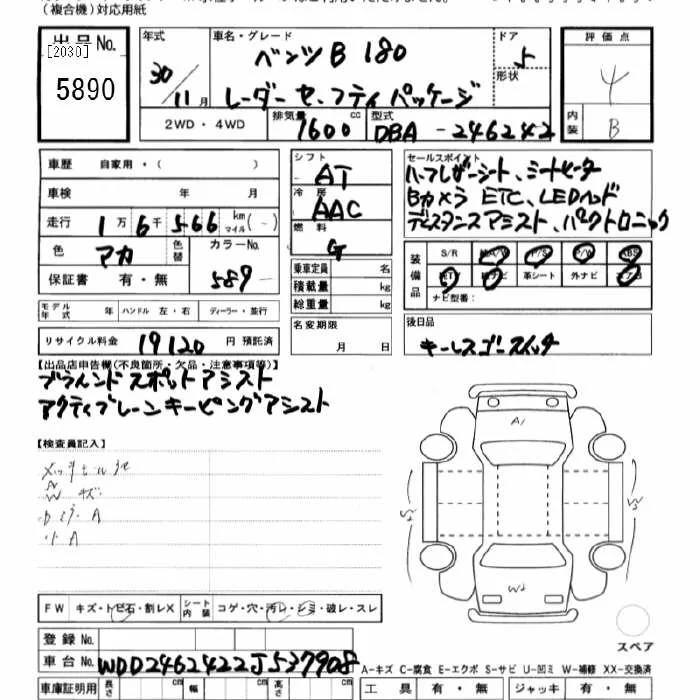 (複合機)対応用紙
出品No.
[2030]
5890
年式
30年
11月
車名・グレード
ベンツB 180
レーダーセーフティパッケージ
ドア
5
形状
評価点
4
内装
B
2WD・4WD
排気量
1600 cc
型式
DBA-246242
車歴 自家用・( )
車検 年 月
走行 1万6千566 km マイル
色 アカ 色替 カラーNo. 589
保証書 有・無
シフト
AT
冷房
AAC
燃料
G
乗車定員 名
積載量 kg
総重量 kg
セールスポイント
ハーフレザーシート、シートヒーター
Bカメラ ETC、LEDヘッド
ディスタンスアシスト、パークトロニック
装備品
S/R P/S P/W ABS
革シート 外ナビ
ナビ型番:
モデル年式 年 ハンドル 左・右 ディーラー・並行
名変期限
月 日
後日品
キーレスゴースイッチ
リサイクル料金 19120 円 預託済
【出品店申告機(不良箇所・欠品・注意事項等)】
ブラインドスポットアシスト
アクティブレーンキーピングアシスト
【検査員記入】
A1
W2
FW キズ・トビ石・割レX シート内装 コゲ・穴・汚レ・シミ・破レ・スレ
スペア
登録No.
車台No. WDD2462422J537908
A-キズ C-腐食 E-エクボ S-サビ U-凹ミ W-補修 XX-交換済
車庫証明用 長さ cm 幅 cm 高さ cm
工具 有・無 ジャッキ 有・無